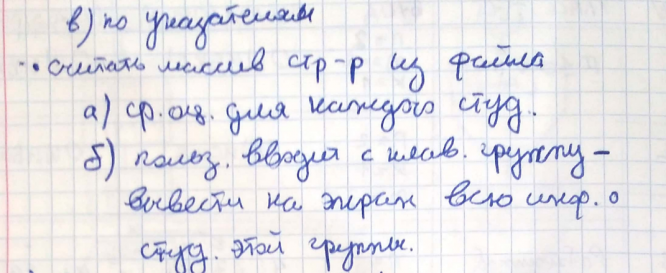 в) по указателям
• считать массив стр-р из файла
а) ср. оц. для каждого студ.
б) польз. вводит с клав. группу –
вывести на экран всю инф. о
студ. этой группы.